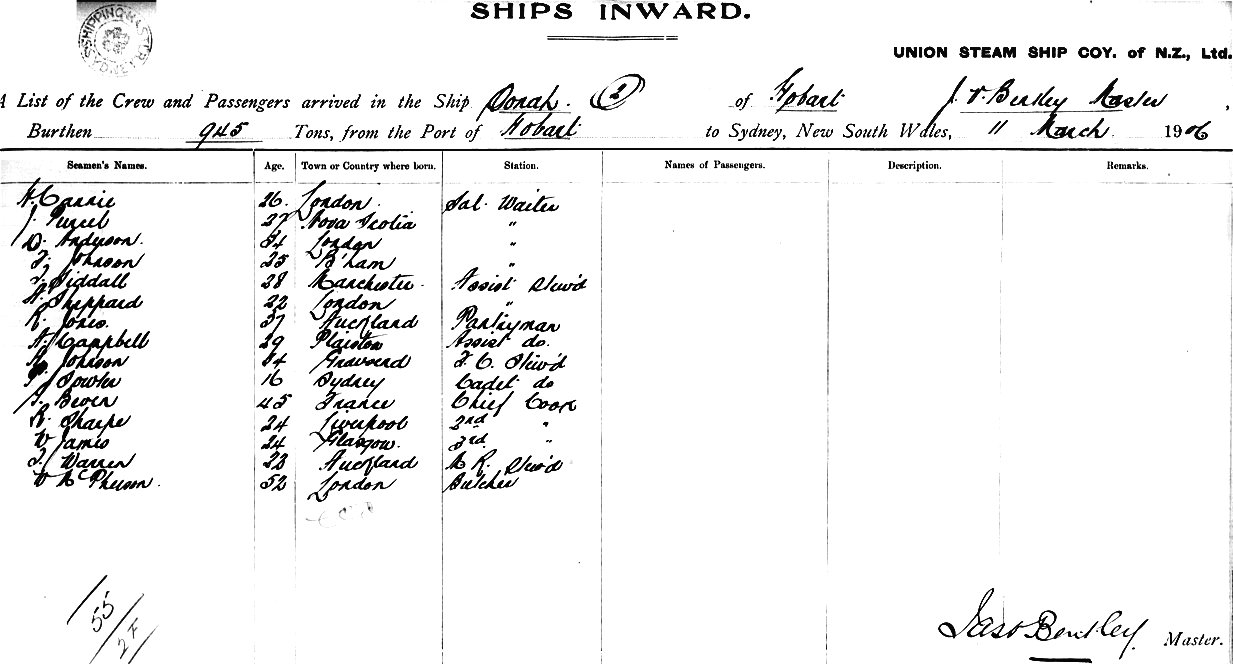 SHIPS INWARD.
SHIPPING MASTER SYDNEY
UNION STEAM SHIP COY. of N.Z., Ltd.
A List of the Crew and Passengers arrived in the Ship Oonah. (2) of Hobart J. V. Bentley Master,
Burthen 945 Tons, from the Port of Hobart to Sydney, New South Wales, 11 March 1906
Seamen's Names. Age. Town or Country where born. Station. Names of Passengers. Description. Remarks.
26. London. Sal. Waiter
J. Purcel 27 Nova Scotia "
D. Anderson. 34 London "
Johnson 25 B'ham "
Siddall 28 Manchester. Assist Stew'd
A. Sheppard 22 London "
R. Jones. 37 Auckland Pantryman
A. Campbell 29 Plaistow Assist do.
A. Johnson 34 Gravsend F. C. Stew'd
Fowler 16 Sydney Cadet do
Beven 45 France Chief Cook
R. Sharpe 24 Liverpool 2nd "
W James 24 Glasgow. 3rd "
Warren 23 Auckland M R. Stew'd
W McPherson. 52 London Butcher
55
2F
Jas V Bentley Master.